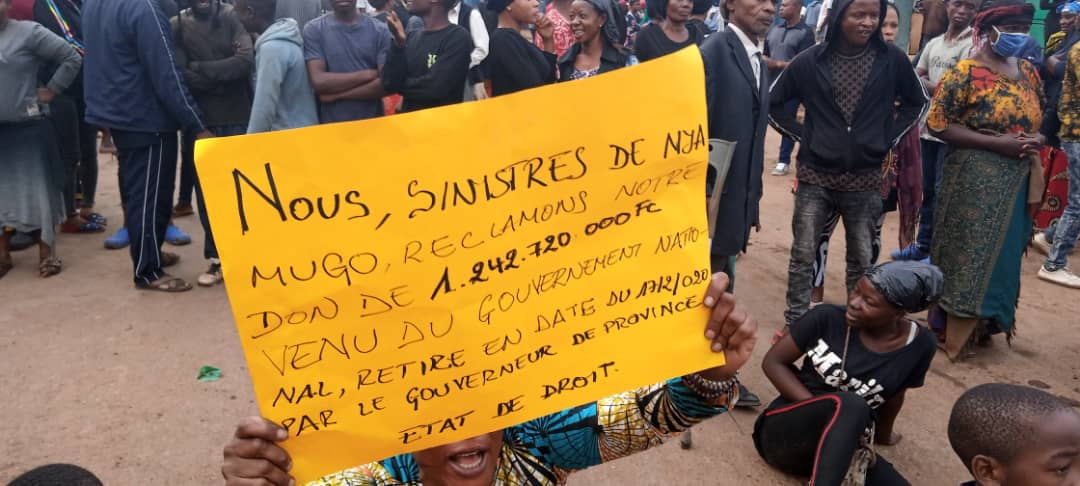 NOUS, SINISTRES DE NYA
MUGO, RECLAMONS NOTRE
DON DE 1.242.720.000 FC
VENU DU GOUVERNEMENT NATIO-
NAL, RETIRE EN DATE DU 17/2/020
PAR LE GOUVERNEUR DE PROVINCE
ETAT DE DROIT.
Marila